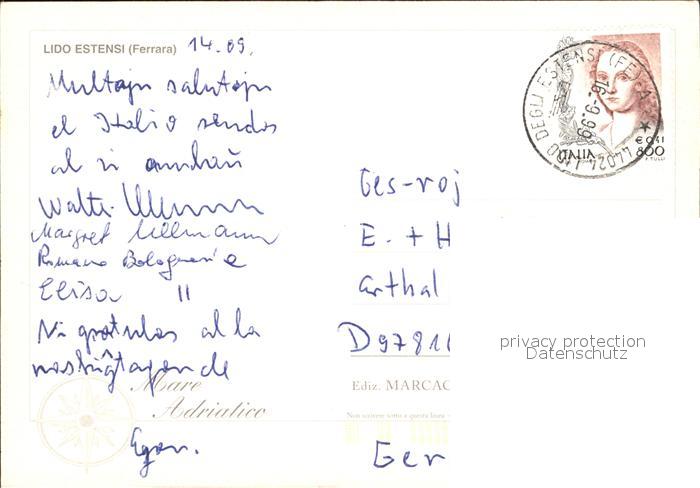 LIDO ESTENSI (Ferrara) 14.09.
Multajn salutojn
el Italio sendas
al vi ambaŭ
Walter Ullmann
Margret Ullmann
Romano Bolognesi e
Elisa "
Ni gratulas al la
naskiĝtagon de
Egon.
Mare
Adriatico
Ges-roj
E. + H
Arthal
D97811
Ediz. MARCAC
Non scrivere sotto a questa linea
Ger
44024 LIDO DEGLI ESTENSI (FE)
16.-9.99
€ 0,41
800
privacy protection
Datenschutz